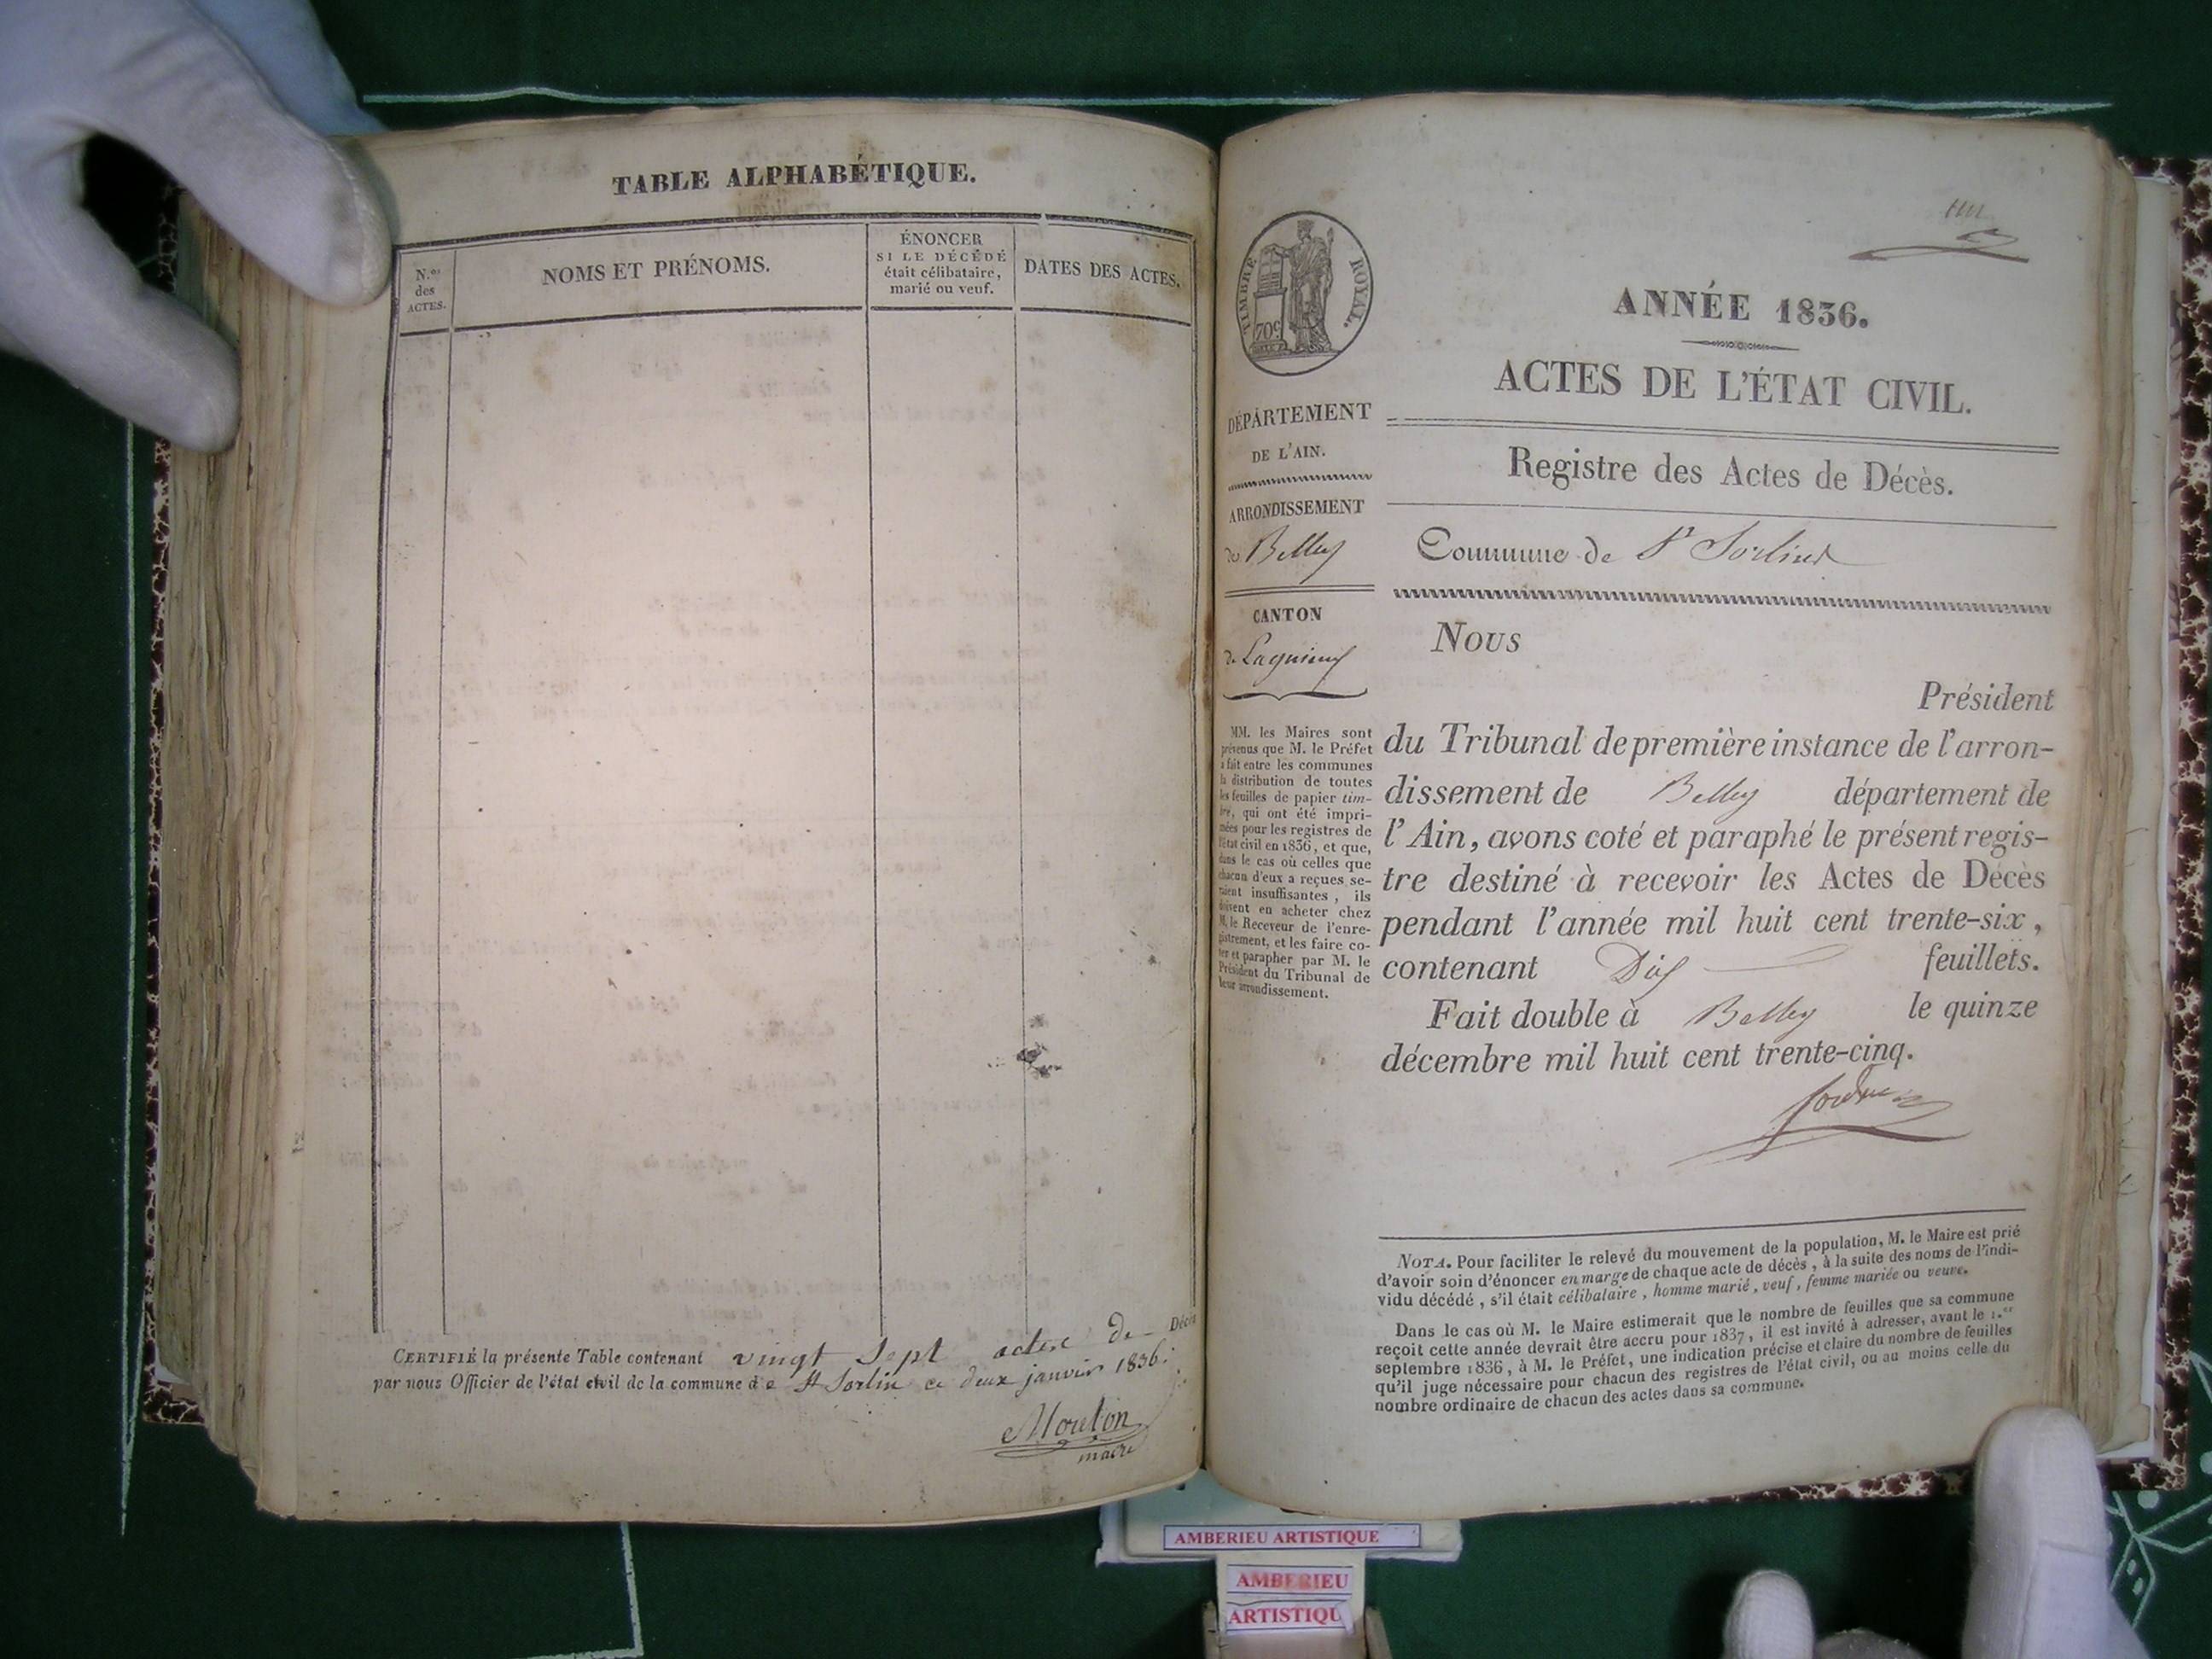 TABLE ALPHABÉTIQUE.
N.os
des
ACTES.
NOMS ET PRÉNOMS.
ÉNONCER
SI LE DÉCÉDÉ
était célibataire,
marié ou veuf.
DATES DES ACTES.
CERTIFIÉ la présente Table contenant vingt sept actes de Décès
par nous Officier de l'état civil de la commune de St Sorlin ce deux janvier 1836.
Mouton
maire
TIMBRE ROYAL.
70c
DÉPARTEMENT
DE L'AIN.
ARRONDISSEMENT
de Belley
CANTON
de Lagnieu
MM. les Maires sont
prévenus que M. le Préfet
a fait entre les communes
la distribution de toutes
les feuilles de papier tim-
bré, qui ont été impri-
mées pour les registres de
l'état civil en 1836, et que,
dans le cas où celles que
chacun d'eux a reçues se-
raient insuffisantes, ils
doivent en acheter chez
M. le Receveur de l'enre-
gistrement, et les faire co-
ter et parapher par M. le
Président du Tribunal de
leur arrondissement.
ANNÉE 1836.
ACTES DE L'ÉTAT CIVIL.
Registre des Actes de Décès.
Commune de St Sorlin
Nous
Président
du Tribunal de première instance de l'arron-
dissement de Belley département de
l'Ain, avons coté et paraphé le présent regis-
tre destiné à recevoir les Actes de Décès
pendant l'année mil huit cent trente-six,
contenant Dix feuillets.
Fait double à Belley le quinze
décembre mil huit cent trente-cinq.
NOTA. Pour faciliter le relevé du mouvement de la population, M. le Maire est prié
d'avoir soin d'énoncer en marge de chaque acte de décès, à la suite des noms de l'indi-
vidu décédé, s'il était célibataire, homme marié, veuf, femme mariée ou veuve.
Dans le cas où M. le Maire estimerait que le nombre de feuilles que sa commune
reçoit cette année devrait être accru pour 1837, il est invité à adresser, avant le 1.er
septembre 1836, à M. le Préfet, une indication précise et claire du nombre de feuilles
qu'il juge nécessaire pour chacun des registres de l'état civil, ou au moins celle du
nombre ordinaire de chacun des actes dans sa commune.
AMBERIEU ARTISTIQUE
AMBERIEU
ARTISTIQU